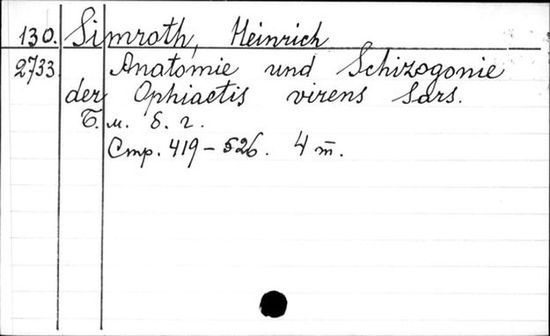 130. Simroth, Heinrich
2733. Anatomie und Schizogonie
der Ophiactis virens Sars.
Б. м. б. г.
Стр. 419-526. 4 т̅.